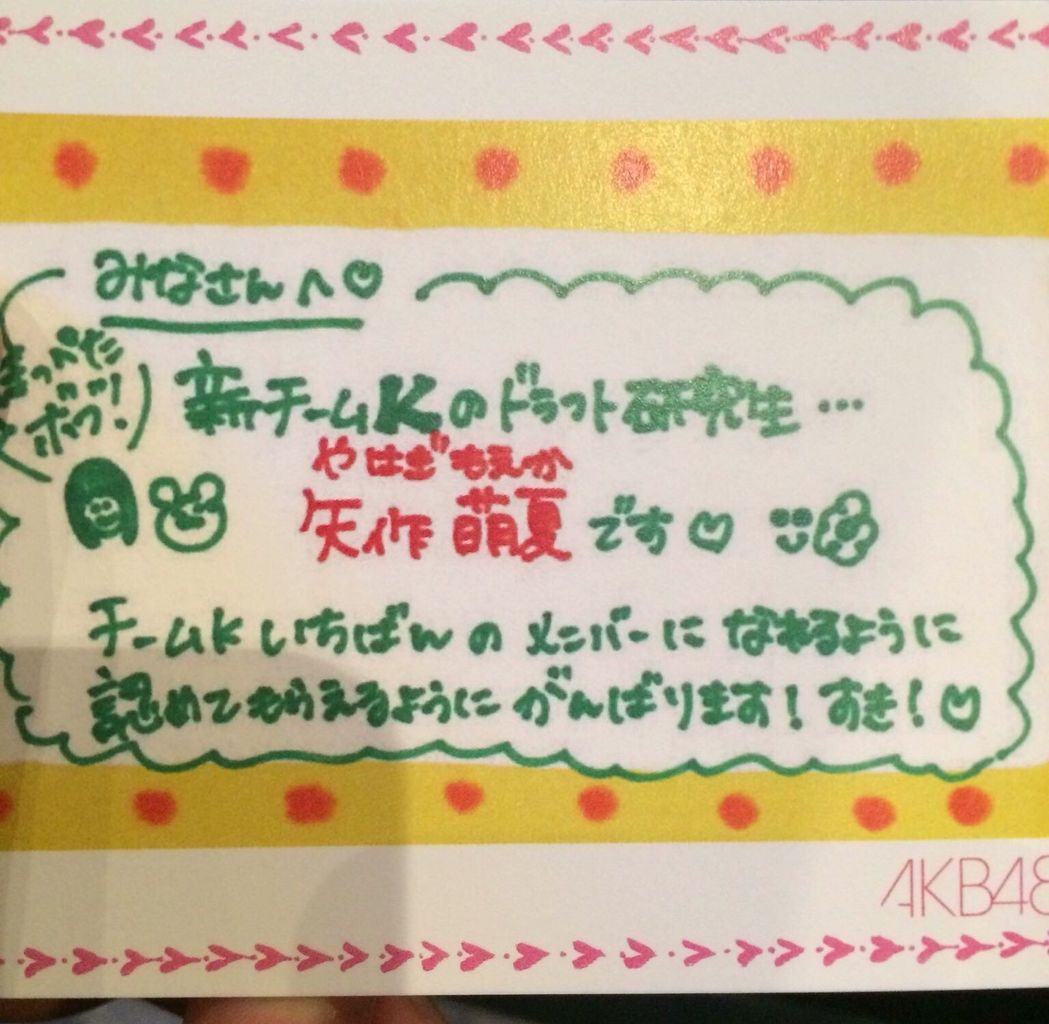 みなさんへ♡
ほっぺた
ボブ!
新チームKのドラフト研究生…
やはぎ もえか
矢作 萌夏 です♡
チームK いちばん の メンバーに なれるように
認めてもらえるように がんばります! すき!♡
AKB48